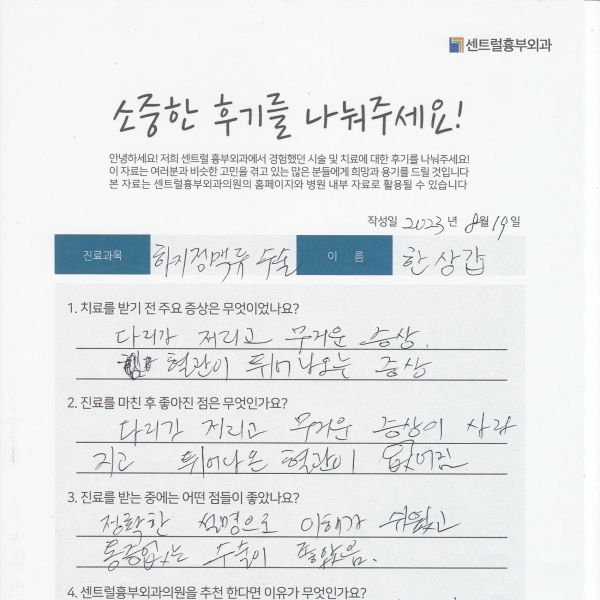 센트럴흉부외과
소중한 후기를 나눠주세요!
안녕하세요! 저희 센트럴 흉부외과에서 경험했던 시술 및 치료에 대한 후기를 나눠주세요!
이 자료는 여러분과 비슷한 고민을 겪고 있는 많은 분들에게 희망과 용기를 드릴 것입니다
본 자료는 센트럴흉부외과의원의 홈페이지와 병원 내부 자료로 활용될 수 있습니다
작성일 2023 년 8월 19일
진료과목 하지정맥류 수술 이 름 한상갑
1. 치료를 받기 전 주요 증상은 무엇이었나요?
다리가 저리고 무거운 증상.
혈관이 튀어나오는 증상
2. 진료를 마친 후 좋아진 점은 무엇인가요?
다리가 저리고 무거운 증상이 사라
지고 튀어나온 혈관이 없어짐
3. 진료를 받는 중에는 어떤 점들이 좋았나요?
정확한 설명으로 이해가 쉬웠고
통증없는 수술이 좋았음.
4. 센트럴흉부외과의원을 추천 한다면 이유가 무엇인가요?